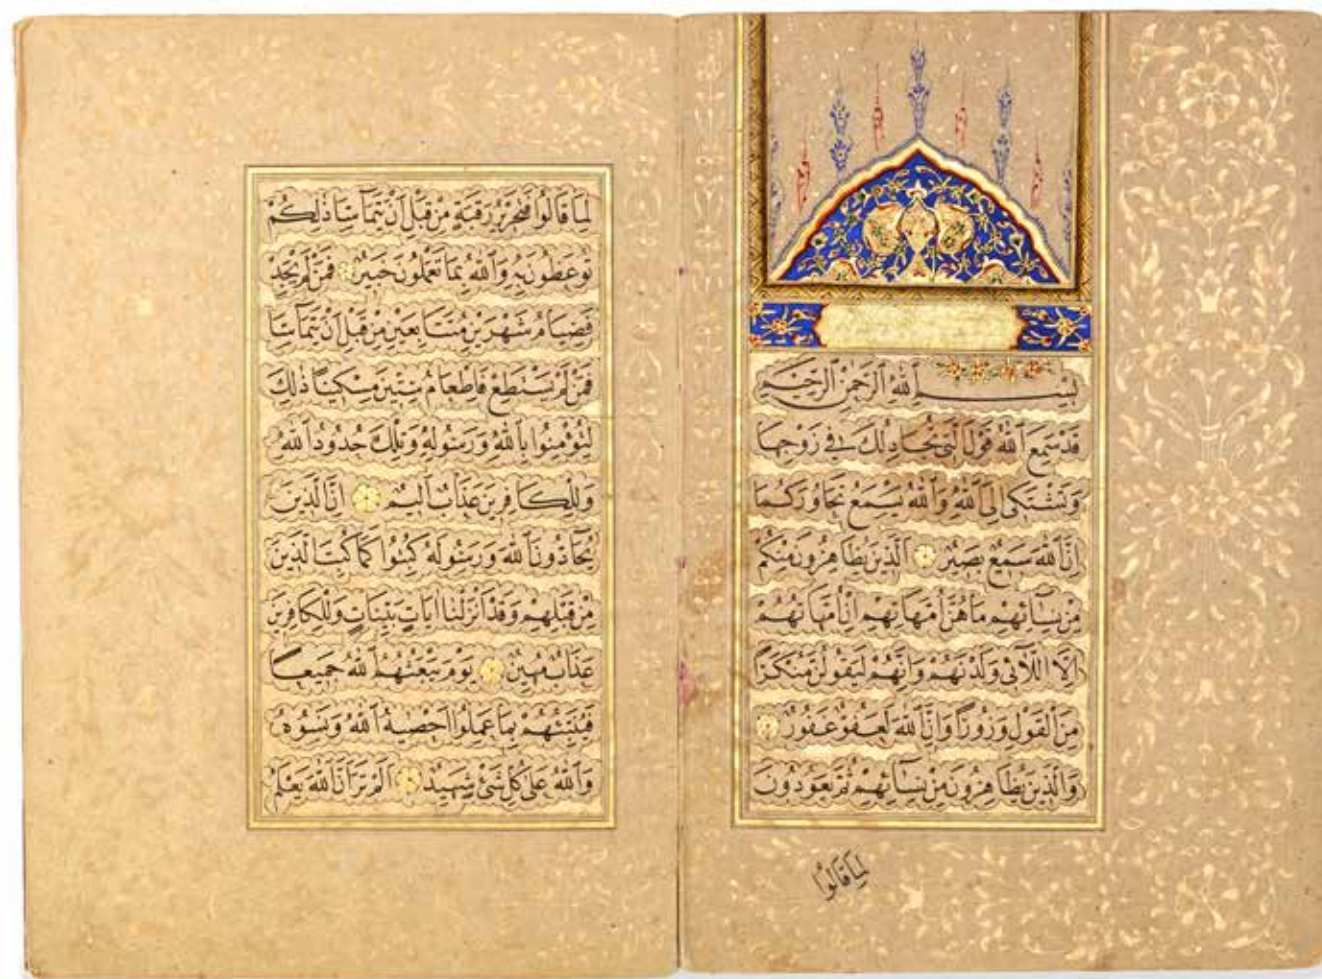 بِسْمِ اللهِ الرَّحْمٰنِ الرَّحِيمِ
قَدْ سَمِعَ اللهُ قَوْلَ الَّتِي تُجَادِلُكَ فِي زَوْجِهَا
وَتَشْتَكِي اِلَى اللهِ وَاللهُ يَسْمَعُ تَحَاوُرَكُمَا
اِنَّ اللهَ سَمِيعٌ بَصِيرٌ اَلَّذِينَ يُظَاهِرُونَ مِنْكُمْ
مِنْ نِسَائِهِمْ مَا هُنَّ اُمَّهَاتِهِمْ اِنْ اُمَّهَاتُهُمْ
اِلَّا اللَّائِي وَلَدْنَهُمْ وَاِنَّهُمْ لَيَقُولُونَ مُنْكَرًا
مِنَ الْقَوْلِ وَزُورًا وَاِنَّ اللهَ لَعَفُوٌّ غَفُورٌ
وَالَّذِينَ يُظَاهِرُونَ مِنْ نِسَائِهِمْ ثُمَّ يَعُودُونَ
لِمَا قَالُوا
لِمَا قَالُوا فَتَحْرِيرُ رَقَبَةٍ مِنْ قَبْلِ اَنْ يَتَمَاسَّا ذٰلِكُمْ
تُوعَظُونَ بِهِ وَاللهُ بِمَا تَعْمَلُونَ خَبِيرٌ فَمَنْ لَمْ يَجِدْ
فَصِيَامُ شَهْرَيْنِ مُتَتَابِعَيْنِ مِنْ قَبْلِ اَنْ يَتَمَاسَّا
فَمَنْ لَمْ يَسْتَطِعْ فَاِطْعَامُ سِتِّينَ مِسْكِينًا ذٰلِكَ
لِتُؤْمِنُوا بِاللهِ وَرَسُولِهِ وَتِلْكَ حُدُودُ اللهِ
وَلِلْكَافِرِينَ عَذَابٌ اَلِيمٌ اِنَّ الَّذِينَ
يُحَادُّونَ اللهَ وَرَسُولَهُ كُبِتُوا كَمَا كُبِتَ الَّذِينَ
مِنْ قَبْلِهِمْ وَقَدْ اَنْزَلْنَا اٰيَاتٍ بَيِّنَاتٍ وَلِلْكَافِرِينَ
عَذَابٌ مُهِينٌ يَوْمَ يَبْعَثُهُمُ اللهُ جَمِيعًا
فَيُنَبِّئُهُمْ بِمَا عَمِلُوا اَحْصٰيهُ اللهُ وَنَسُوهُ
وَاللهُ عَلٰى كُلِّ شَيْءٍ شَهِيدٌ اَلَمْ تَرَ اَنَّ اللهَ يَعْلَمُ